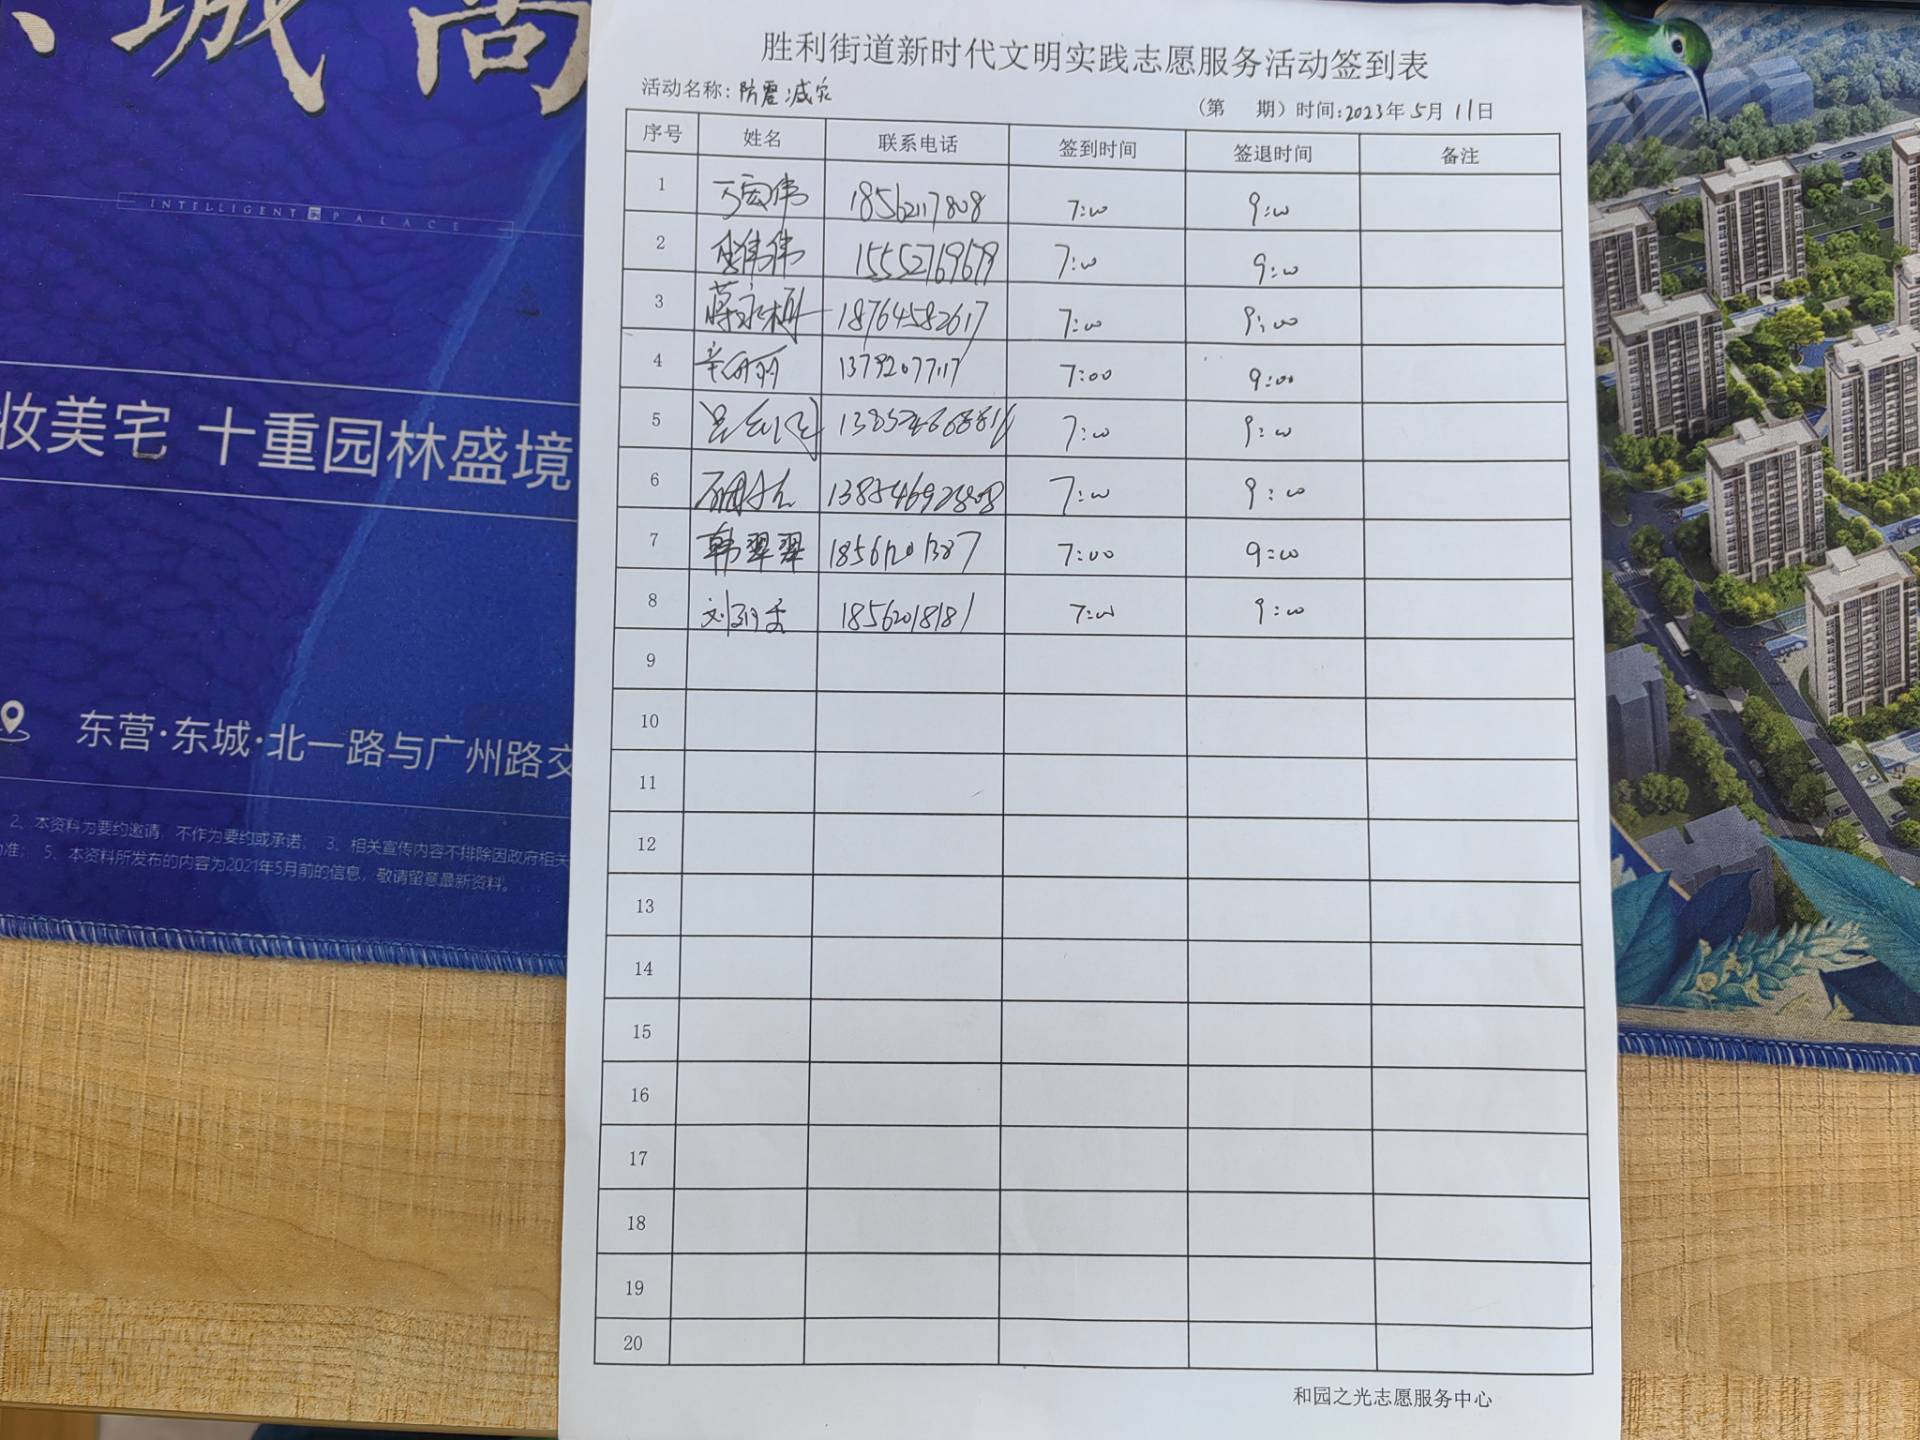 城尚
INTELLIGENT PALACE
妆美宅 十重园林盛境
东营·东城·北一路与广州路交
2、本资料为要约邀请,不作为要约或承诺; 3、相关宣传内容不排除因政府相关
准; 5、本资料所发布的内容为2021年5月前的信息,敬请留意最新资料。
胜利街道新时代文明实践志愿服务活动签到表
活动名称:防震减灾
(第 期)时间:2023年5月11日
序号 姓名 联系电话 签到时间 签退时间 备注
1 18562117808 7:00 9:00
2 伟伟 15552769679 7:00 9:00
3 蒋永 18764582617 7:00 9:00
4 辛丽 13792077117 7:00 9:00
5 7:00 9:00
6 7:00 9:00
7 韩翠翠 18561201387 7:00 9:00
8 刘 18562018181 7:00 9:00
9
10
11
12
13
14
15
16
17
18
19
20
和园之光志愿服务中心